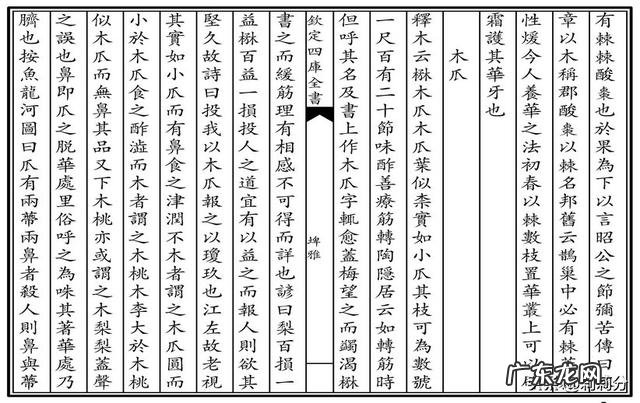 有棘棘酸棗也於果為下以言昭公之節彌苦傳曰
章以木稱郡酸棗以棘名邦舊云鵲巢中必有棘
性煖今人養華之法初春以棘數枝置華叢上可以
霜護其華牙也
木瓜
釋木云楙木瓜木瓜葉似柰實如小瓜其枝可為數號
一尺百有二十節味酢善療筋轉陶隱居云如轉筋時
但呼其名及書上作木瓜字輒愈蓋梅望之而蠲渴楙
欽定四庫全書
埤雅
書之而緩筋理有相感不可得而詳也諺曰梨百損一
益楙百益一損投人之道宜有以益之而報人則欲其
堅久故詩曰投我以木瓜報之以瓊玖也江左故老視
其實如小瓜而有鼻食之津潤不木者謂之木瓜圓而
小於木瓜食之酢澁而木者謂之木桃木李大於木桃
似木瓜而無鼻其品又下木桃亦或謂之木梨梨蓋聲
之誤也鼻即瓜之脫華處里俗呼之為味其著華處乃
臍也按魚龍河圖曰瓜有兩蔕兩鼻者殺人則鼻與蔕
广东龙网